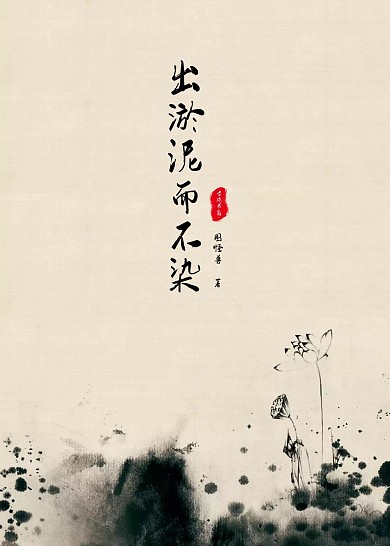 出淤泥而不染
图怪兽 著